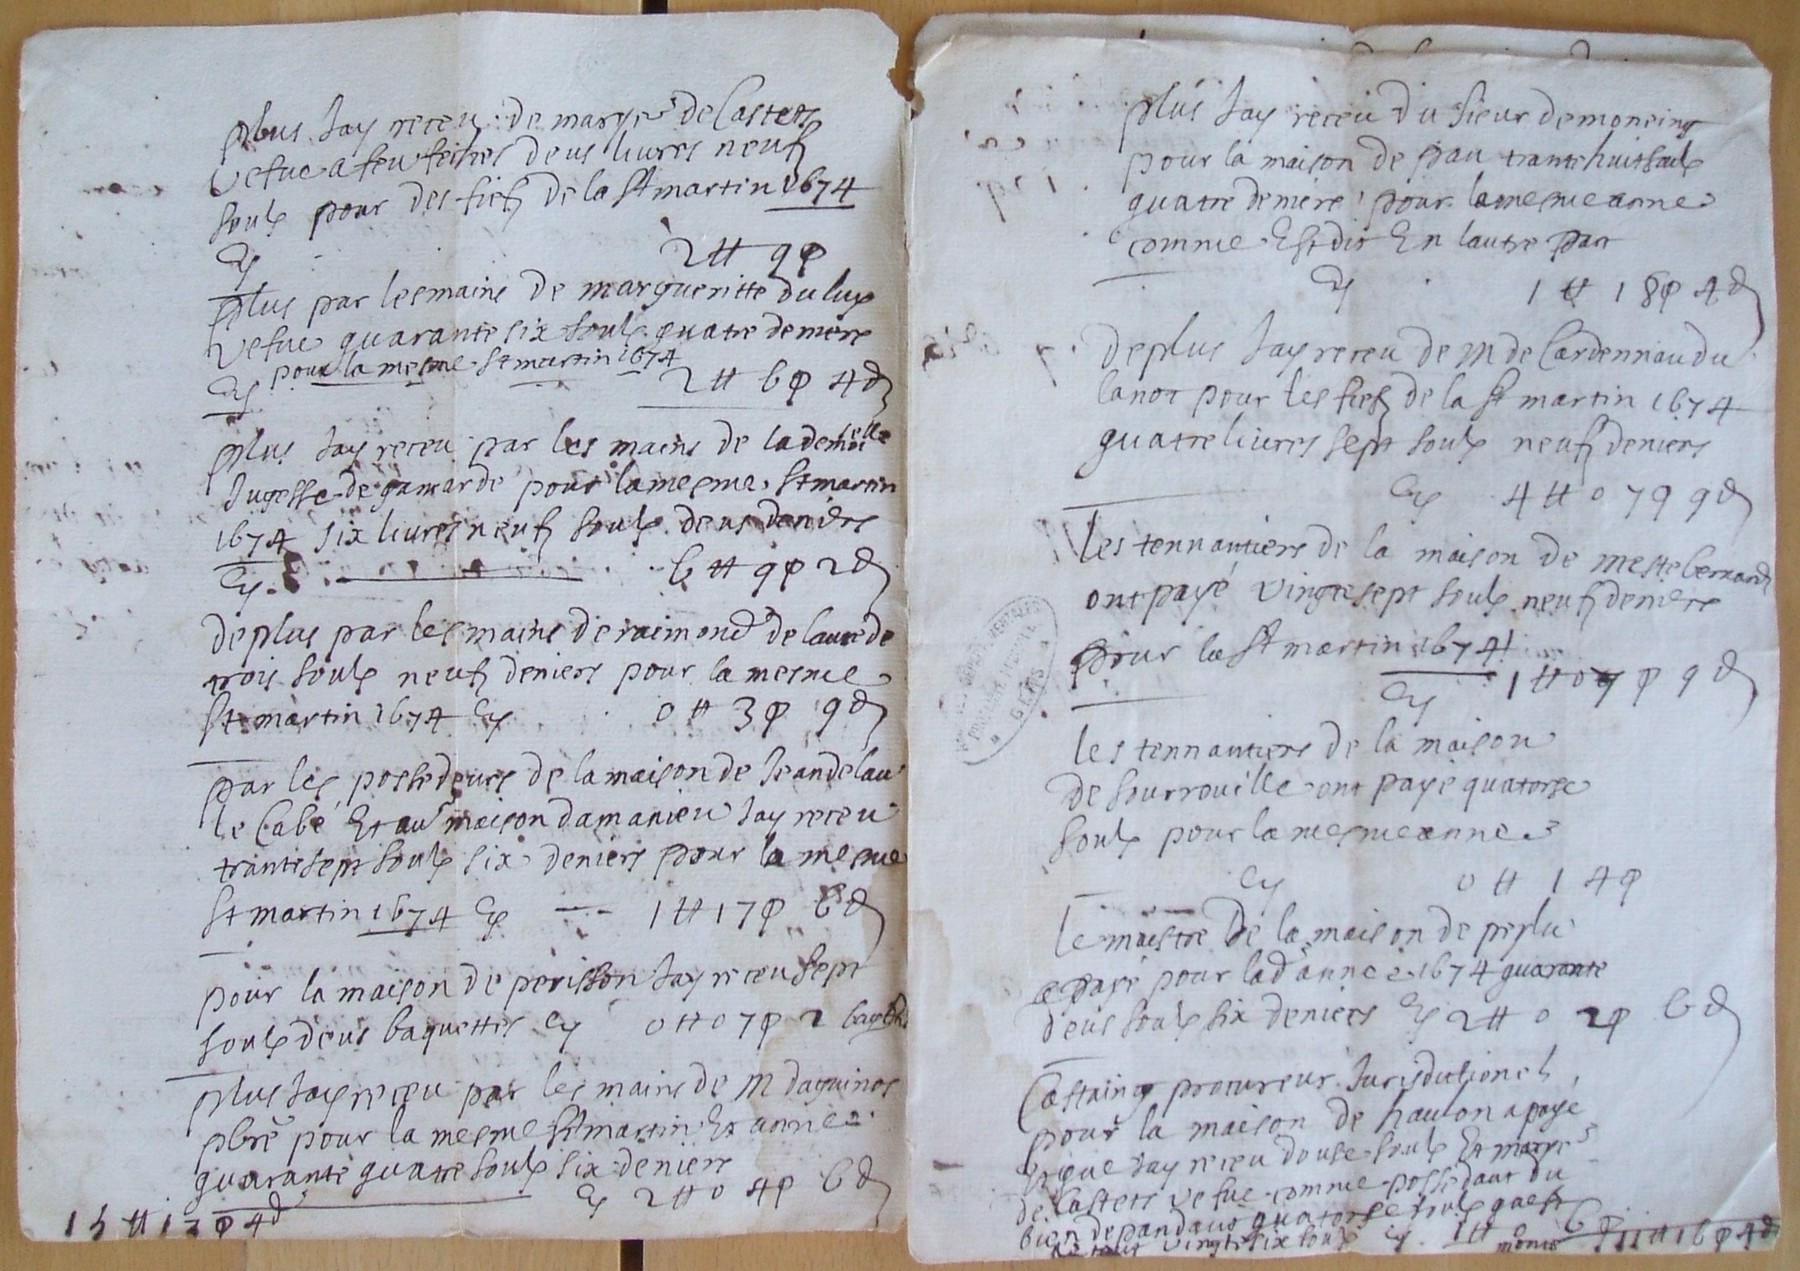 plus Jay receu de marye de Casterз
vefue a feu feitres deus livres neuf
soulz pour des fiefz de la St martin 1674
Cy 2 # 9 s
plus par les mains de margueritte du lup
vefue quarante six soulz quatre deniers
pour la mesme St martin 1674
Cy 2 # 6 s 4 d
plus Jay receu par les mains de la demoiselle
Jugesse de gamarde pour la mesme St martin
1674 six livres neuf soulz deus deniers
Cy. 6 # 9 s 2 d
de plus par les mains de raimond de laurede
trois soulz neuf deniers pour la mesme
St martin 1674 Cy 0 # 3 s 9 d
par les possedeurs de la maison de Jean de lau
le Cabé Et au maison damanieu Jay receu
trante sept soulz six deniers pour la mesme
St martin 1674 Cy 1 # 17 s 6 d
pour la maison de perisson Jay receu sept
soulz deus baquettes Cy 0 # 07 s 2
plus Jay receu par les mains de M daguinos
pbre pour la mesme St martin Et annee
quarante quatre soulz six deniers
Cy 2 # 0 4 s 6 d
15 # 13 s 4 d
plus Jay receu du sieur de moneing
pour la maison de pau trante huit soulz
quatre deniers pour la mesme anne
comme Est dit En lautre part
Cy 1 # 18 s 4 d
de plus Jay receu de M de Cardennau du
lanot pour les fiefz de la St martin 1674
quatre livres sept soulz neuf deniers
Cy 4 # 0 7 s 9 d
Les tennantiers de la maison de meste bernard
ont payé vingt sept soulz neuf deniers
pour la St martin 1674
Cy 1 # 0 7 s 9 d
les tennantiers de la maison
de sourrouille ont paye quatorse
soulz pour la mesme anne
Cy 0 # 14 s
Le maistre de la maison de peplu
a payé pour lad annee 1674 quarante
deus soulz six deniers Cy 2 # 0 2 s 6 d
Castaing procureur Jurisdictionel
pour la maison de haulon a paye
Jay receu douse soulz Et marye
de Casterз vefue comme possedant du
bien depandant quatorse soulz
vingt six soulz Cy 1 # 6 s
monte 11 # 16 s 4 d